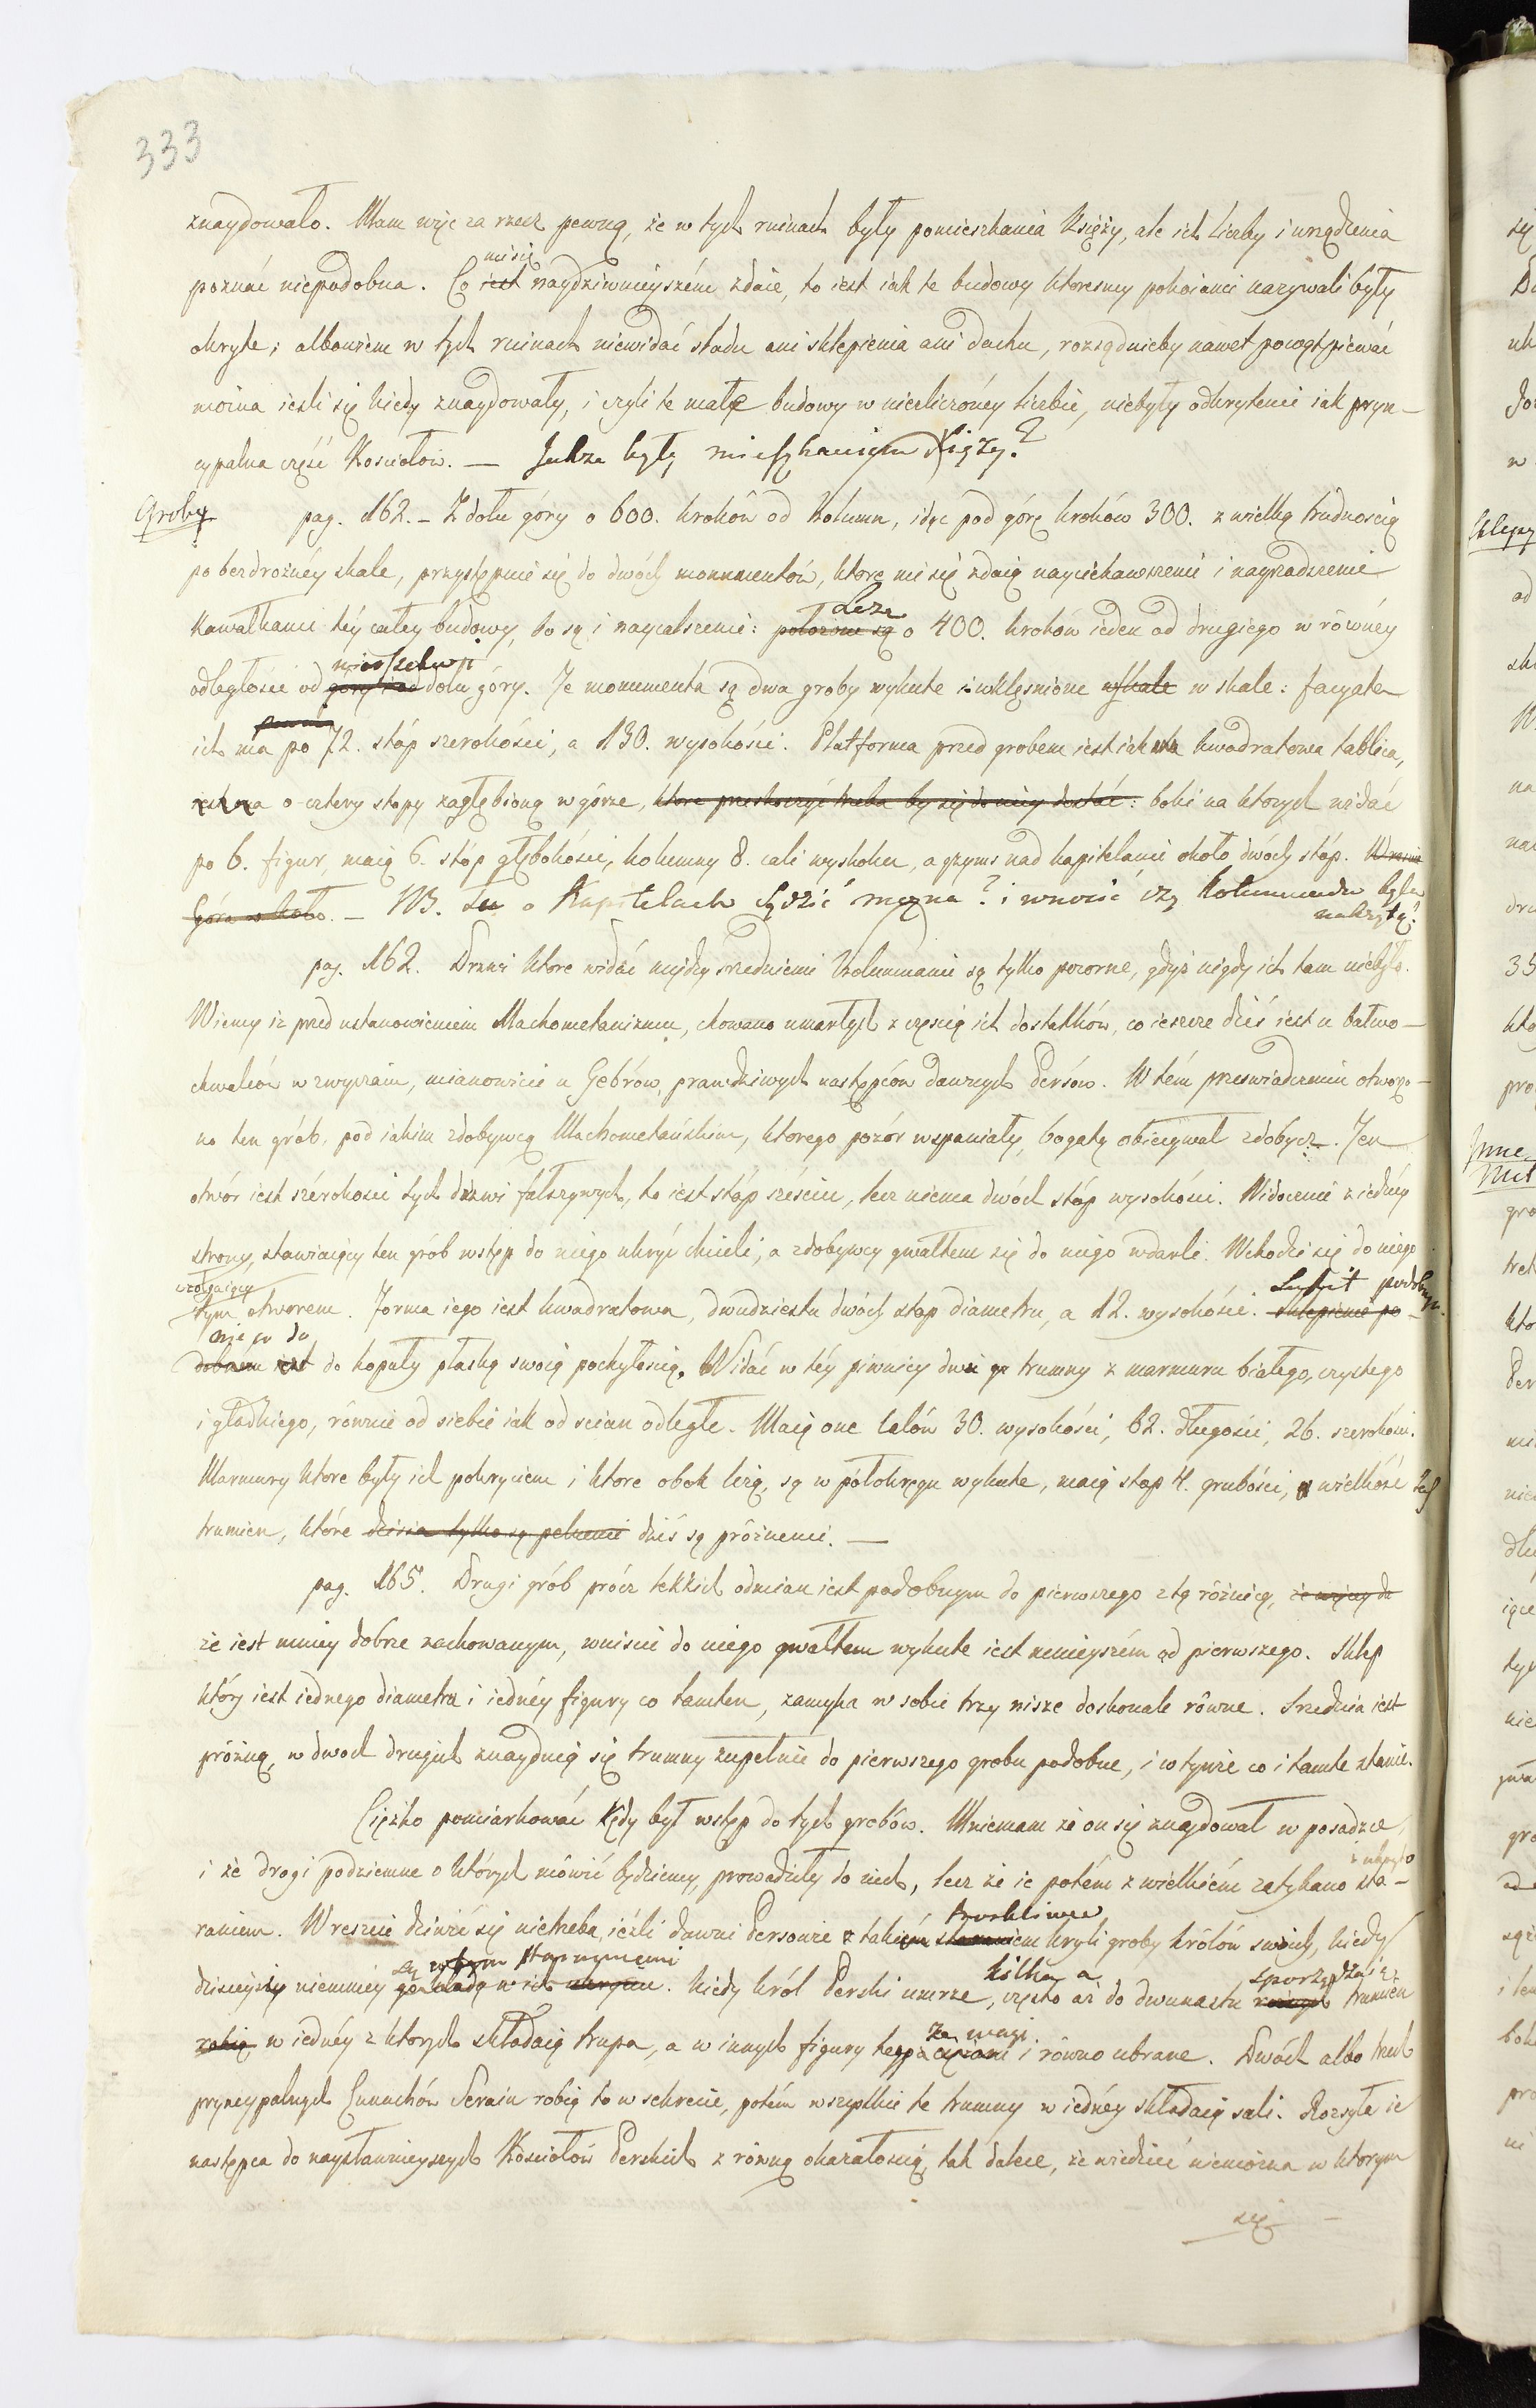 333
znaydowało. Mam więc za rzecz pewną, że w tych ruinach były pomieszkania Księży, ale ich liczby i urządzenia
mi się
poznać niepodobna. Co iest naydziwnieyszém zdaie, to iest iak te budowy któreśmy pokoiami nazywali były
okryte; albowiem w tych ruinach niewidać śladu ani sklepienia ani dachu, rozsądnieby nawet powątpiewać
można ieśli się kiedy znaydowały, i czyli te małe budowy w niezliczoney liczbie, niebyły odkrytemi iak pryn-
cypalna część Kościołów. — Jakże były mieszkaniem Xięży?
Groby
pag. 162. – Z dołu góry o 600. kroków od Kolumn, idąc pod górę kroków 300. z wielką trudnością
po bezdrożnéy skale, przystępuie się do dwóch monumentów, które mi się zdaią nayciekawszemi i nayrzadszemi
Leżą
kawałkami téy całey budowy, bo są i naycalszemi: położone są o 400. kroków ieden od drugiego w równéy
odległości od dołu góry. Te monumenta są dwa groby wykute i wklęśnione w skale w skale: facyata
ich ma po 72. stóp szerokości, a 130. wysokości. Platforma przed grobem iest iakna kwadratowa tablica,
o cztery stopy zagłębioną w górze, które przeskoczyć trzeba by się do niey dostać: boki na których widać
po 6. figur, maią 6. stóp głębokości, kolumny 8. cali wyskoku, a gzyms nad kapitelami około dwóch stóp.
Góra w koło. – NB. Tu o Kapitelach sądzić można? i wnosić czy Kolumnada była
nakrytą?
pag. 162. Drzwi które widać między średniemi Kolumnami są tylko pozorne, gdyż nigdy ich tam niebyło.
Wiemy iż przed ustanowieniem Machometanizmu, chowano umarłych z częścią ich dostatków, co ieszcze dziś iest u bałwo-
chwalców w zwyczaiu, mianowicie u Gebrów, prawdziwych następców dawnych Persów. W tém przeświadczeniu otworzo-
no ten grób, pod iakim zdobywcą Machometańskim, którego pozór wspaniały, bogatą obiecywał zdobycz. Ten
otwór iest szérokości tych drzwi fałszywych, to iest stóp sześciu, lecz niema dwóch stóp wysokości. Widocznie z iednéy
strony, stawiaiący ten grób wstęp do niego ukryć chcieli, a zdobywcy gwałtem się do niego wdarli. Wchodzi się do niego
czołgaiąc Sufit podobny
tym otworem. Forma iego iest kwadratowa, dwudziestu dwóch stóp diametru, a 12. wysokości. sklepienie po-
dobném iest do kopuły płaską swoią pochyłością. Widać w téy piwnicy dwie trumny z marmuru białego, czystego
i gładkiego, równie od siebie iak od ścian odległe. Maią one calów 30. wysokości, 62. długości, 26. szerokości.
Marmury które były ich pokryciem i które obok leżą, są w półokręgu wykute, maią stop 4. grubości, wielkość tych
trumien, które dzisia tylko są pełnemi dziś są próżnemi. —
pag. 165. Drugi grób prócz lekkich odmian iest podobnym do pierwszego z tą różnicą,
że iest mniey dobrze zachowanym, wniście do niego gwałtem wykute iest mnieyszém od pierwszego. Sklep
który iest iednego diametru i iednéy figury co tamten, zamyka w sobie trzy nisze doskonale równe. Srzednia iest
próżną, w dwóch drugich znayduią się trumny zupełnie do pierwszego grobu podobne, i w tymże co i tamte stanie.
Ciężko pomiarkować kędy był wstęp do tych grobów. Mniemam że on się znaydował w posadzce,
i że drogi podziemne o których mówić będziemy, prowadziły do nich, lecz że ie potém z wielkiém zatykano sta-
troskliwie
raniem. Wreszcie dziwić się nietrzeba, ieźli dawni Persowie z takiém staraniem kryli groby królów swoich, kiedy
kilka, a sporządzaią
dzisieysi niemniéy w ich ukryciu. Kiedy król Perski umrze, często aż do dwunastu trumien
robią w iednéy z których składaią trupa, a w innych figury tegoż ciężaru i równo ubrane. Dwóch albo trzech
pryncypalnych Eunuchów Seraiu robią to w sekrecie, potém wszystkie te trumny w iednéy składaią sali. Rozsyła ie
następca do naysławnieyszych Kościołów Perskich z równą okazałością, tak dalece, że wiedzieć niemożna w którym
się